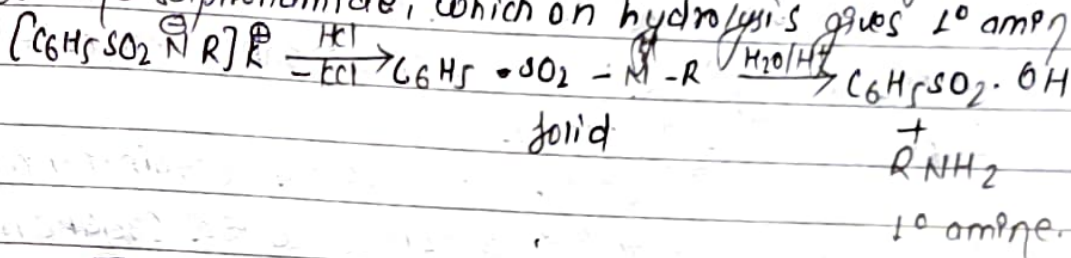 which on hydrolysis gives 1° amin
[C6H5SO2 N⊖ R]K⊕ HCl/-KCl → C6H5 • SO2 - NH - R H2O/H+ → C6H5SO2. OH
solid +
RNH2
1° amine.